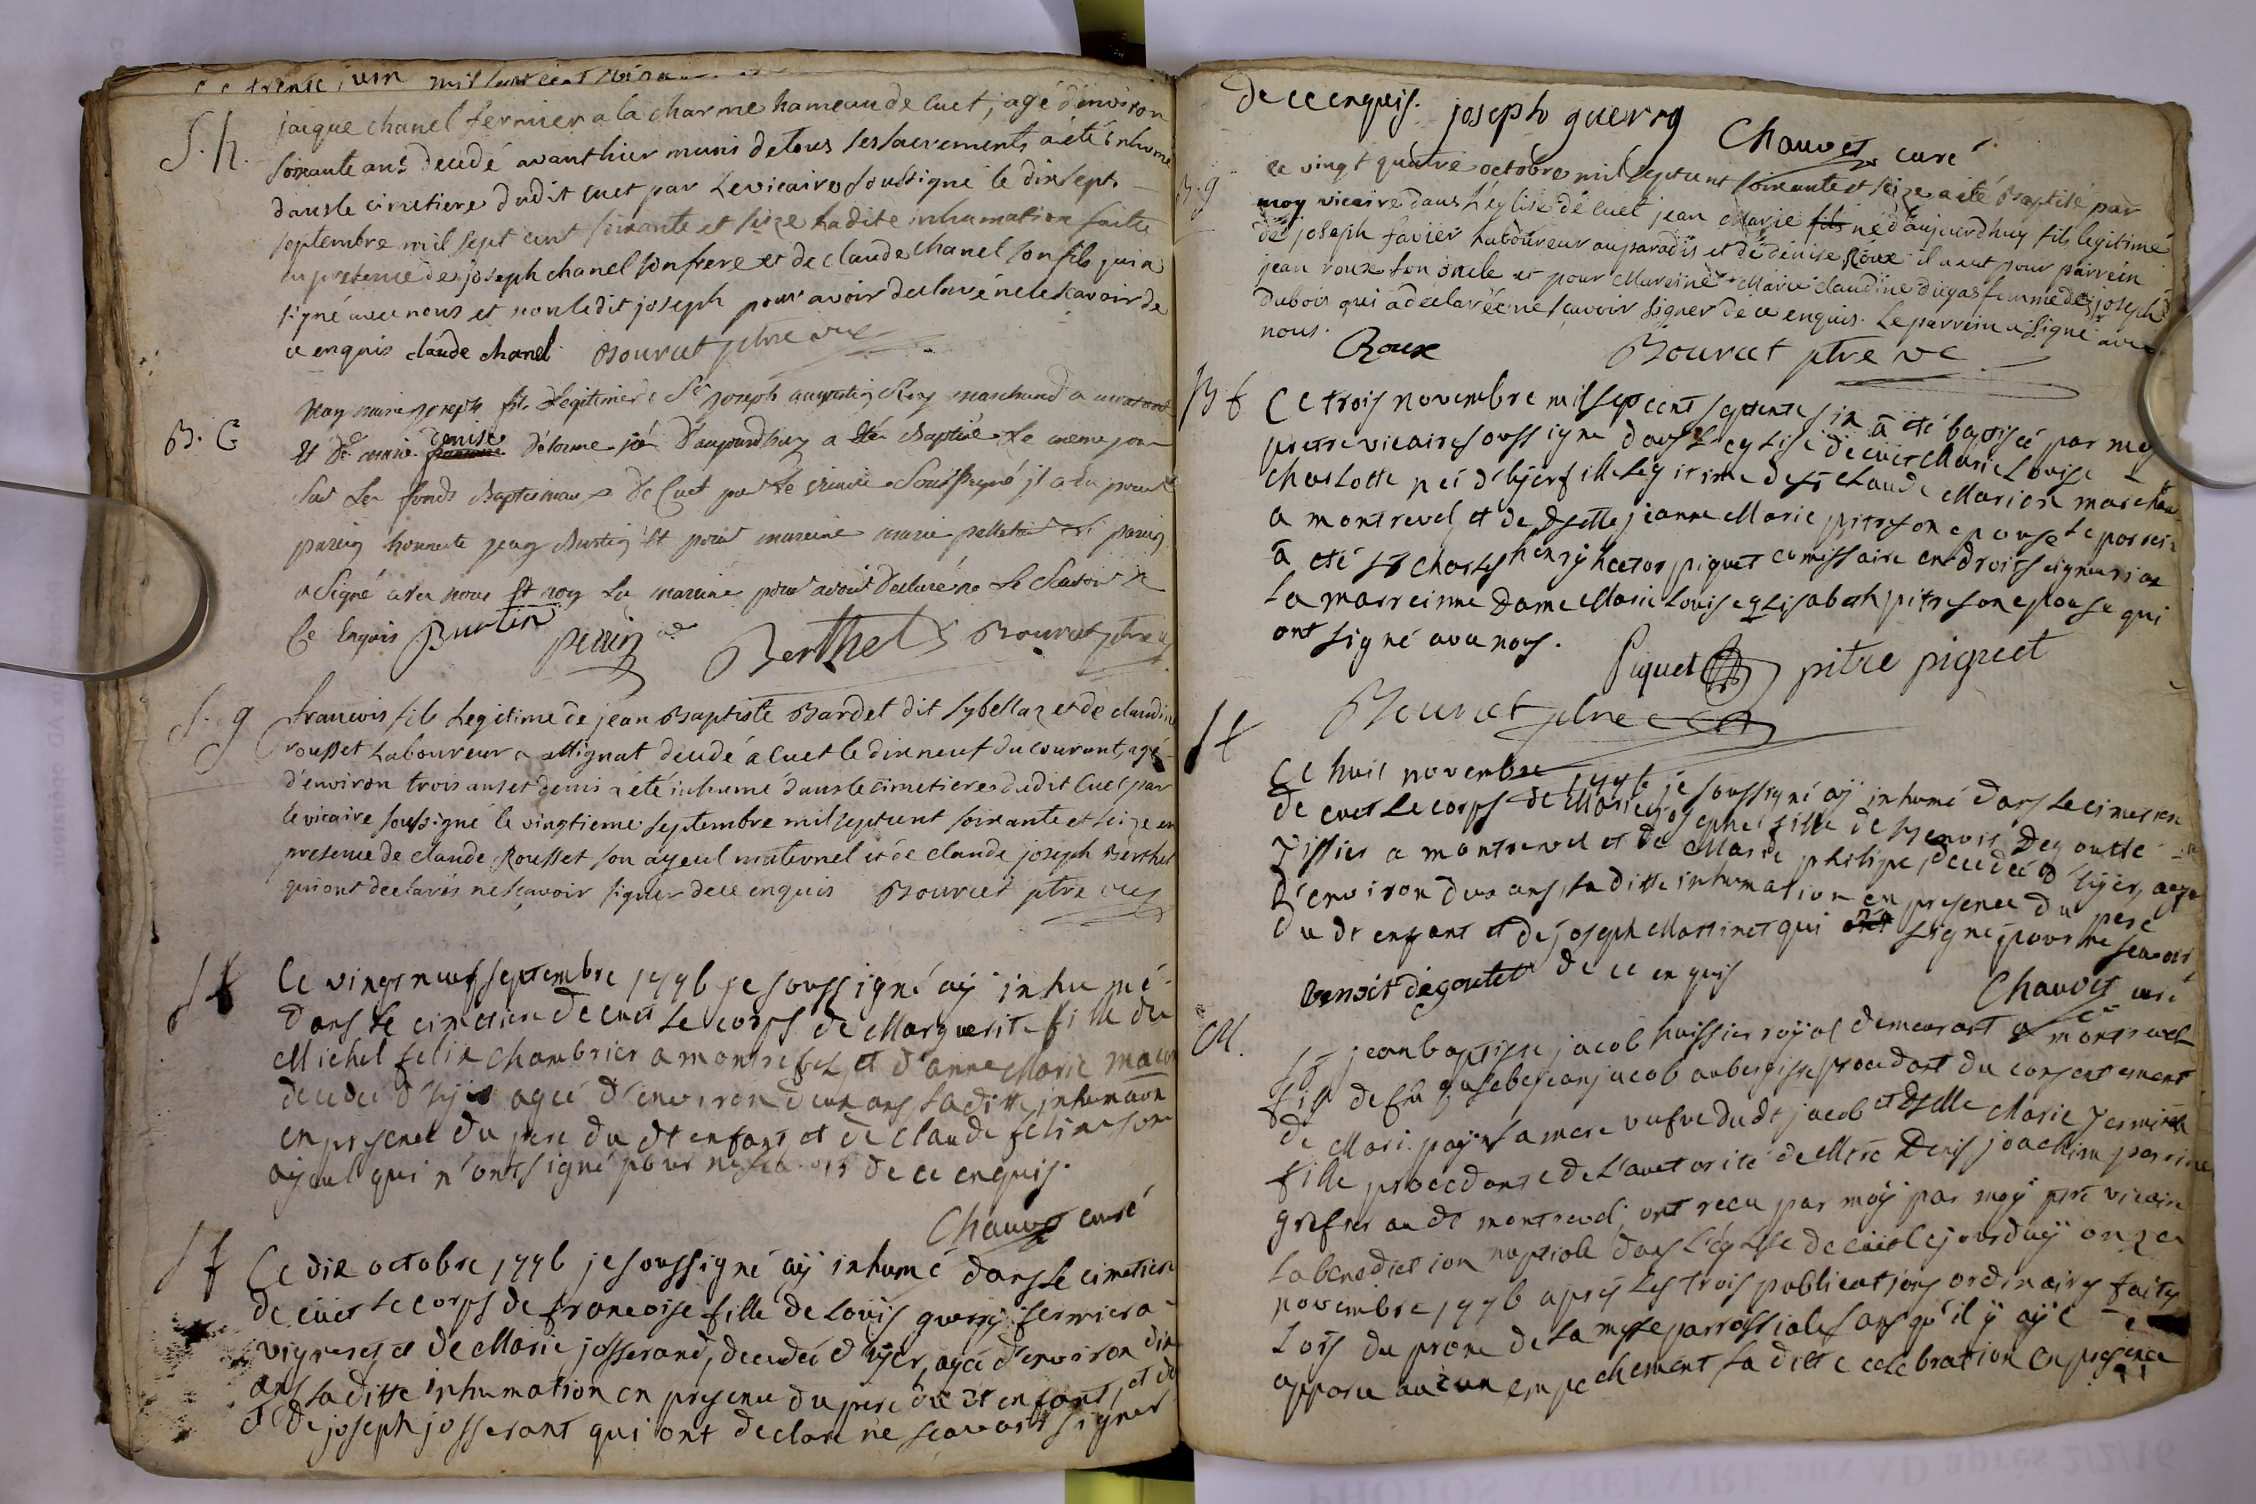 trente juin mil sept cent
S. h.
jaique chanel fermier a la charme hameau de cuet, agé d'environ
soixante ans decedé avant hier muni de tous ses sacrements a été inhumé
dans le cimetiere dudit cuet par le vicaire soussigné le dixsept
septembre mil sept cent soixante et seize ladite inhumation faitte
en presence de joseph chanel son frere et de claude chanel son fils qui a
signé avec nous et non ledit joseph pour avoir declaré ne le scavoir de
ce enquis claude chanel Bourcet ptre vic
B. G
jean marie joseph fils légitime de Sr joseph augustin Rey marchand a montrevel
et de Dlle marie denise délorme né d'aujourdhuy a été Baptisé le meme jour
sur les fonds Baptismaux de Cuet par le vicaire Soussigné il a eu pour
parein honnete jean Burtin et pour mareine marie pelletier le parein
a signé avec nous et non la mareine pour avoir declaré ne le scavoir de
Ce Enquis Burtin perrin Berthet Bourcet ptre vic
S. g
francois fils legitime de jean Baptiste Bardet dit sybellaz et de claudine
rousset laboureur a attignat decedé a cuet le dixneuf du courant, agé
d'environ trois ans et demis a été inhumé dans le cimetiere dudit cuet par
le vicaire soussigné le vingtieme septembre mil sept cent soixante et seize en
presence de claude Rousset son ayeul maternel et de claude joseph Berthet
qui ont declarés ne scavoir signer de ce enquis Bourcet ptre vic
S f
Ce vingt neuf septembre 1776 je soussigné aÿ inhumé
dans le cimetiere de cuet le corps de Marguerite fille du
Michel felix chambrier a montrevel, et d'anne Marie
decedée d'hÿer agée d'environ deux ans ladite inhumaon
en presence du pere du dt enfant et de claude felix son
aÿeul qui n'ont signé pour ne scavoir de ce enquis.
Chauvet curé
S f
Ce dix octobre 1776 je soussigné aÿ inhumé dans le cimetiere
de cuet le corps de francoise fille de Louis guerry fermier a
vignes et de Marie josserand, decedée d'hÿer, agée d'environ dix
ans laditte inhumation en presence du pere du dt enfant, et de
et de joseph josserant qui ont declaré ne scavoir signer
de ce enquis. joseph guerry
Chauvet curé
B. g
ce vingt quatre octobre mil sept cent soixante et seize a été Baptisé par
moy vicaire dans l'église de cuet jean Marie fils né d'aujourdhuy fils legitime
de joseph favier laboureur au paradis et de denise Roux il a eut pour parrein
jean roux son oncle et pour Mareine Marie claudine dugas femme de joseph
dubois qui a declarée ne scavoir signer de ce enquis. Le parrein a signé avec
nous.
Roux Bourcet ptre vic
B f
Ce trois novembre mil sept cent septente six a été baptisée par moy
pretre vicaire soussigné dans l'eglise de cuet Marie Louise
charlotte née d'hÿer fille legitime de Sr claude Marion marchand
a montrevel et de Dselle jeanne Marie pitre son epouse le parrein
a eté Sr charles henry hector piquet comissaire en droits seigneuriaux
La marreinne Dame Marie Louise Elisabeth pitre son epouse qui
ont signé avec nous.
Piquet pitre piquet
Bourcet ptre
S f
Ce huit novembre 1776 je soussigné aÿ inhumé dans le cimetiere
de cuet le corps de Marie josephe fille de benoit Degoutte
tissier a montrevel et de Marie philipe, decedée d'hÿer, agée
d'environ deux ans, ladite inhumation en presence du pere
du dt enfant et de joseph Martinet qui n'a signé pour ne scavoir
benoit dégoutet de ce enquis
Chauvet curé
M.
Sr jean baptiste jacob huissier roÿal demeurant a montrevel
fils de feu jean jacob aubergiste procedant du consentement
de Marie sa mere veufve dudt jacob et Dselle Marie
fille procedante de l'auctorité de Mtre Denis joachim perrin
grefier au dt montrevel, ont recu par moÿ par moÿ ptre vicaire
la benediction nuptiale dans l'eglise de cuet le jourdhuÿ onze
novembre 1776 après les trois publications ordinaires faites
lors du prone de la messe parrossiale sans qu'il ÿ aÿe
apparu aucun empechement ladite celebration en presence